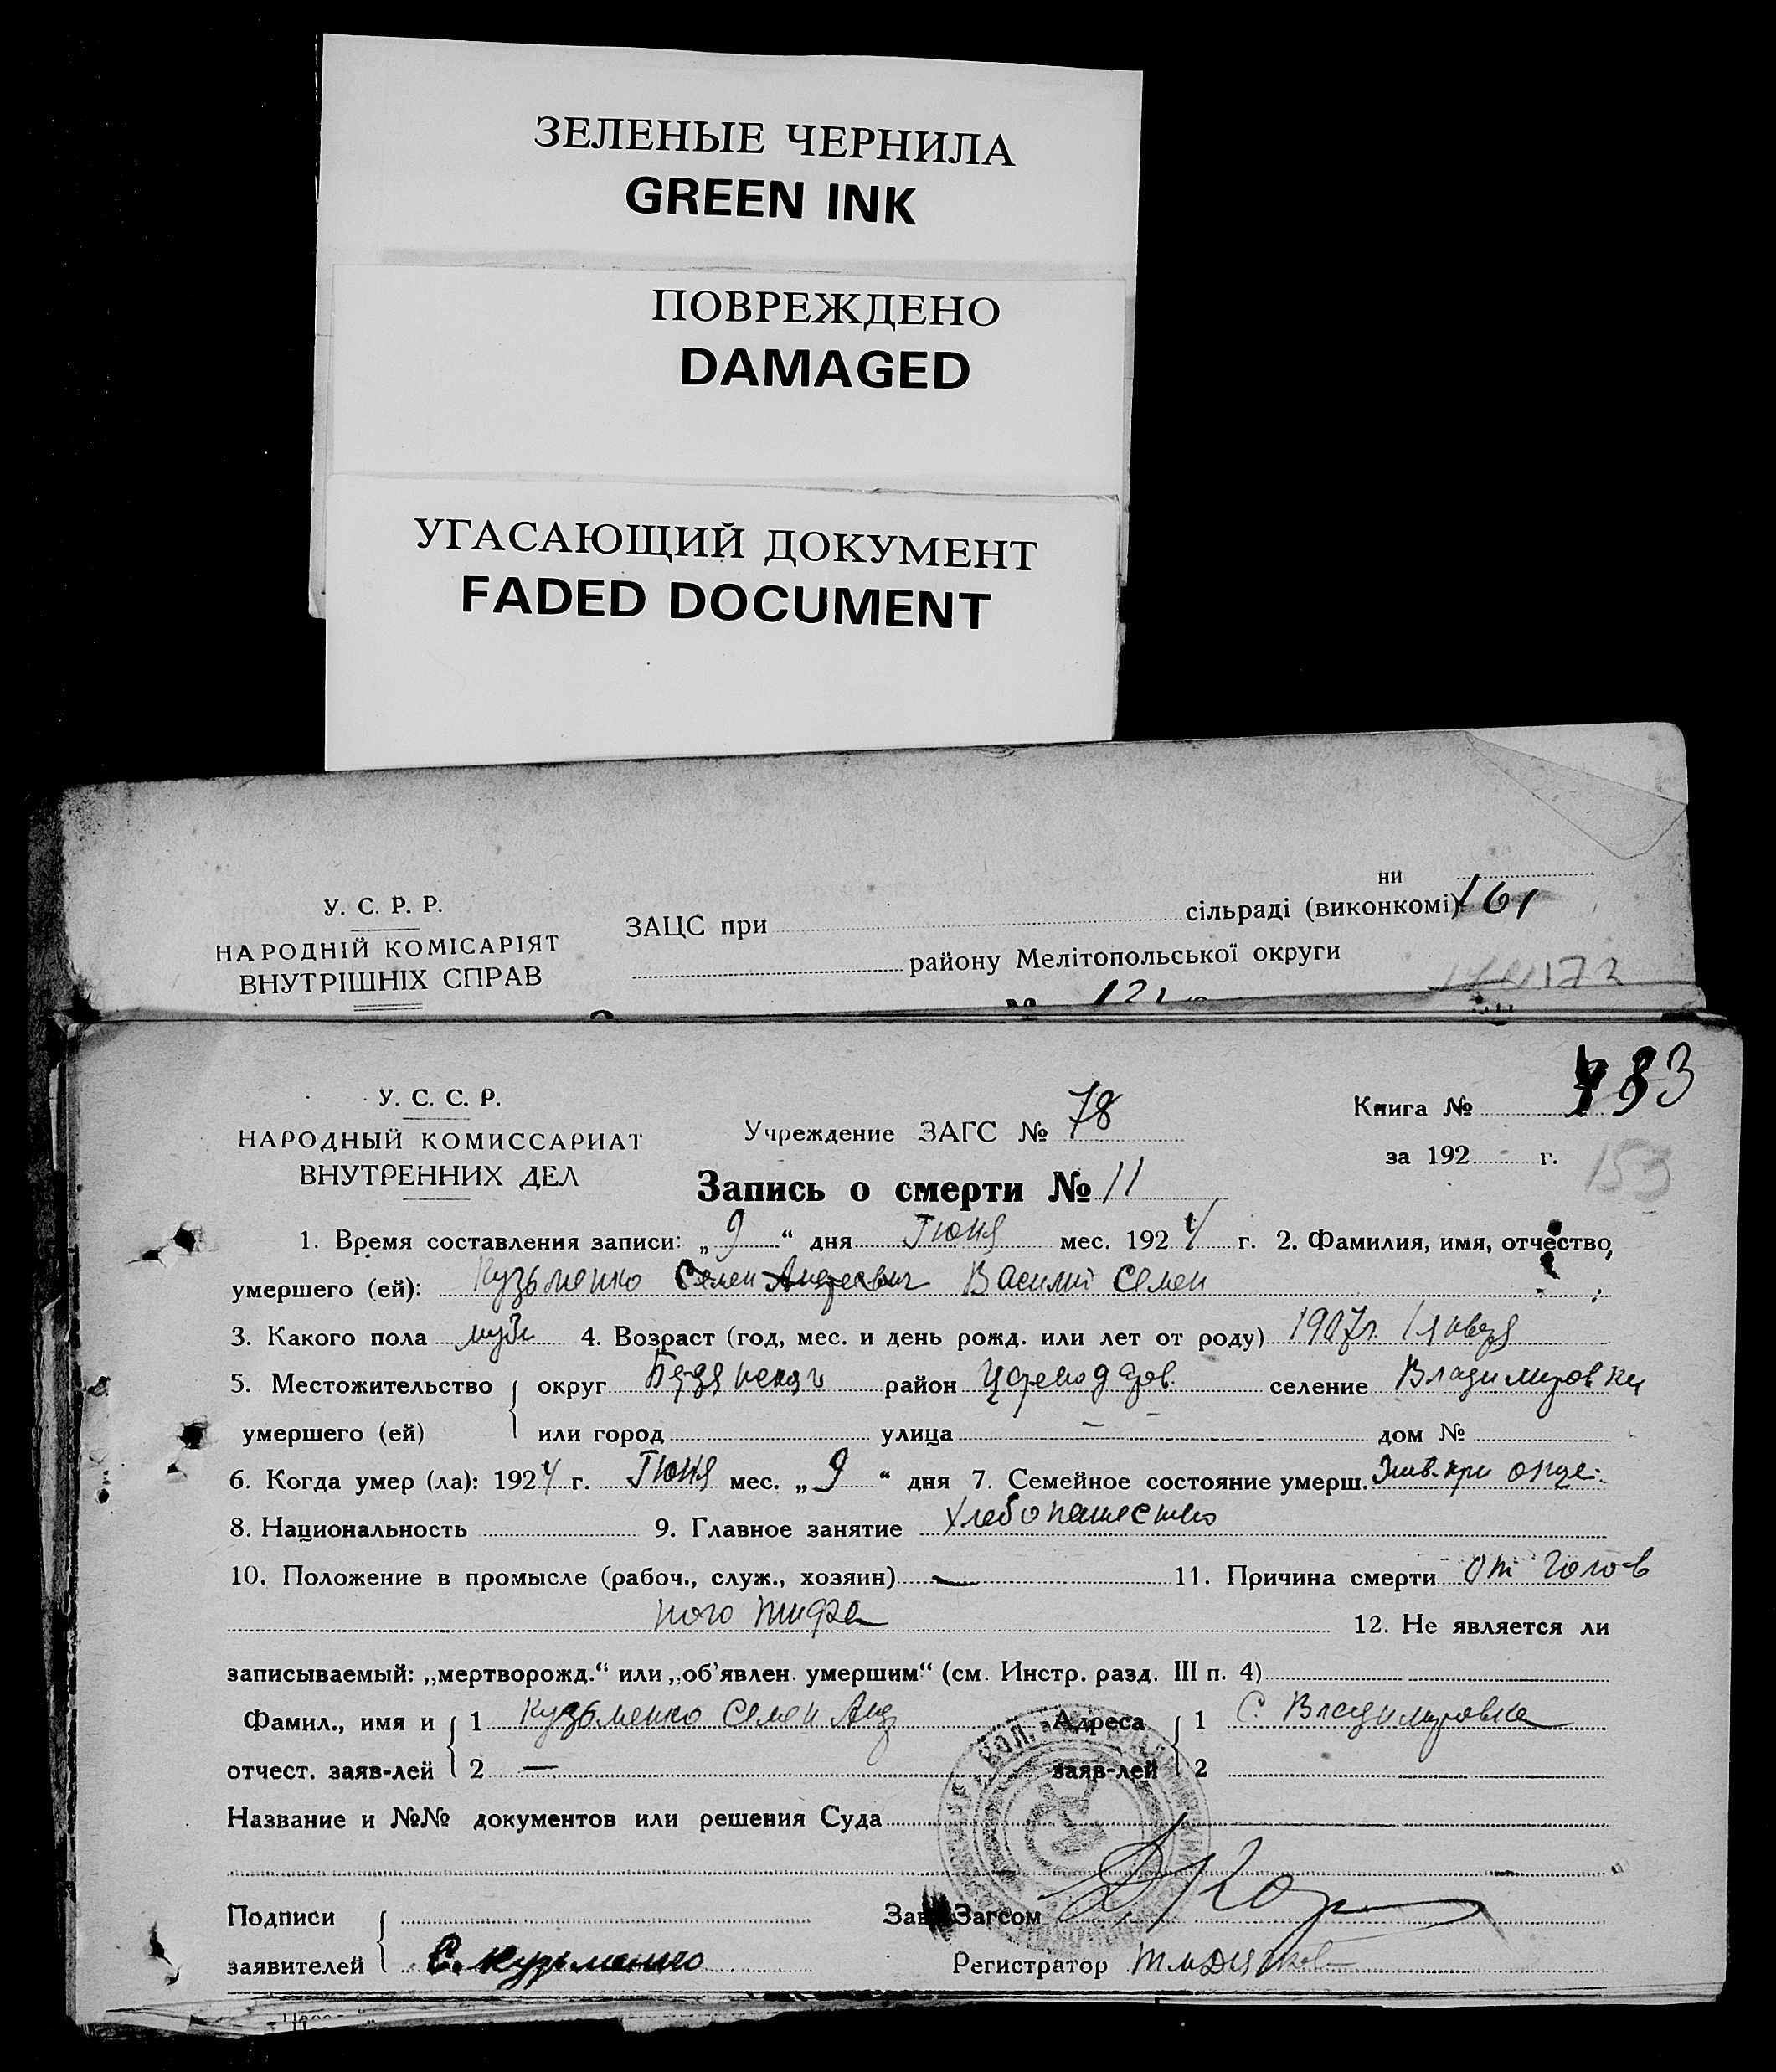 ЗЕЛЕНЫЕ ЧЕРНИЛА
GREEN INK
ПОВРЕЖДЕНО
DAMAGED
УГАСАЮЩИЙ ДОКУМЕНТ
FADED DOCUMENT
У. С. Р. Р.
НАРОДНІЙ КОМІСАРІЯТ
ВНУТРІШНІХ СПРАВ
ни
ЗАЦС при сільраді (виконкомі) 161
району Мелітопольської округи
172
121
У. С. С. Р.
НАРОДНЫЙ КОМИССАРИАТ
ВНУТРЕННИХ ДЕЛ
Учреждение ЗАГС № 78
Книга № 133
за 192 г.
153
Запись о смерти № 11
1. Время составления записи: „ 9 “ дня Июня мес. 1924 г. 2. Фамилия, имя, отчество
умершего (ей): Кузьменко Семен Андреевич Василий Семен
3. Какого пола муж 4. Возраст (год, мес. и день рожд. или лет от роду) 1907 г. 1 января
5. Местожительство округ район Цареводаров. селение Владимировки
умершего (ей) или город улица — — дом №
6. Когда умер (ла): 1924 г. Июня мес. „ 9 “ дня 7. Семейное состояние умерш. жив. при отце
8. Национальность 9. Главное занятие хлебопашество
10. Положение в промысле (рабоч., служ., хозяин) — 11. Причина смерти от голов
ного тифа 12. Не является ли
записываемый: „мертворожд.“ или „об'явлен. умершим“ (см. Инстр. разд. III п. 4)
Фамил., имя и отчест. заяв-лей 1 Кузьменко Семен Анд Адреса заяв-лей 1 С. Владимировка
2 — 2
Название и №№ документов или решения Суда
Подписи заявителей С. Кузьменко
Зав. Загсом
Регистратор